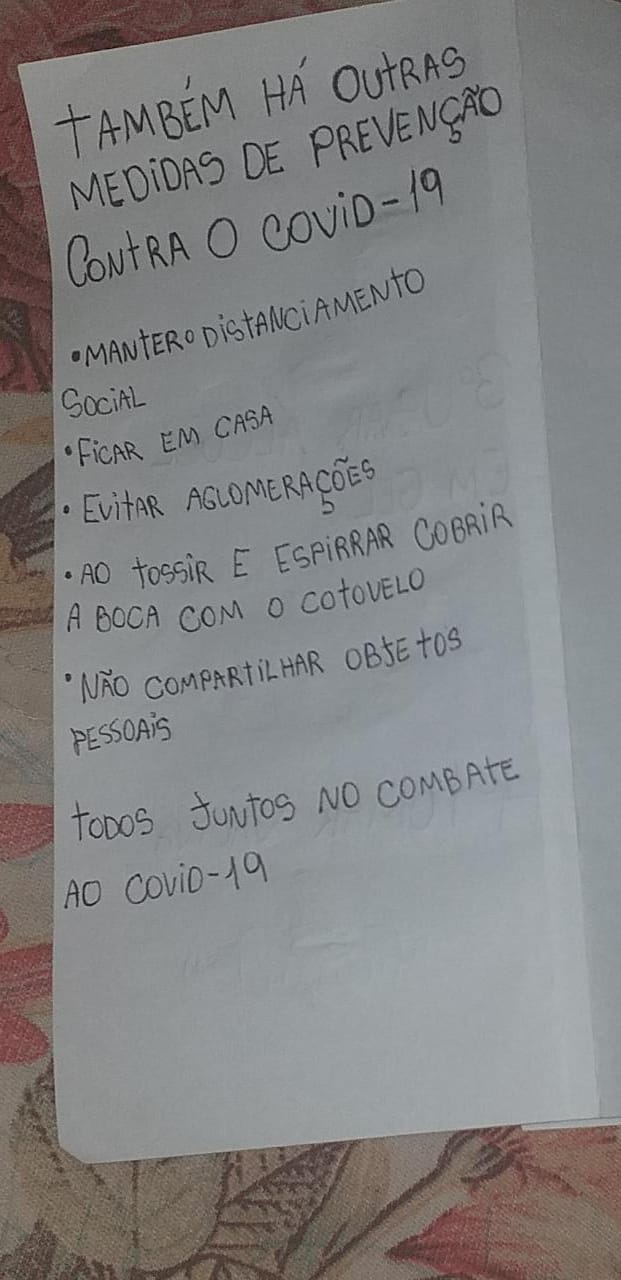 TAMBÉM HÁ OUTRAS
MEDIDAS DE PREVENÇÃO
CONTRA O COVID-19
•MANTER O DISTANCIAMENTO
SOCIAL
•FICAR EM CASA
•EVITAR AGLOMERAÇÕES
•AO TOSSIR E ESPIRRAR COBRIR
A BOCA COM O COTOVELO
•NÃO COMPARTILHAR OBJETOS
PESSOAIS
TODOS JUNTOS NO COMBATE
AO COVID-19